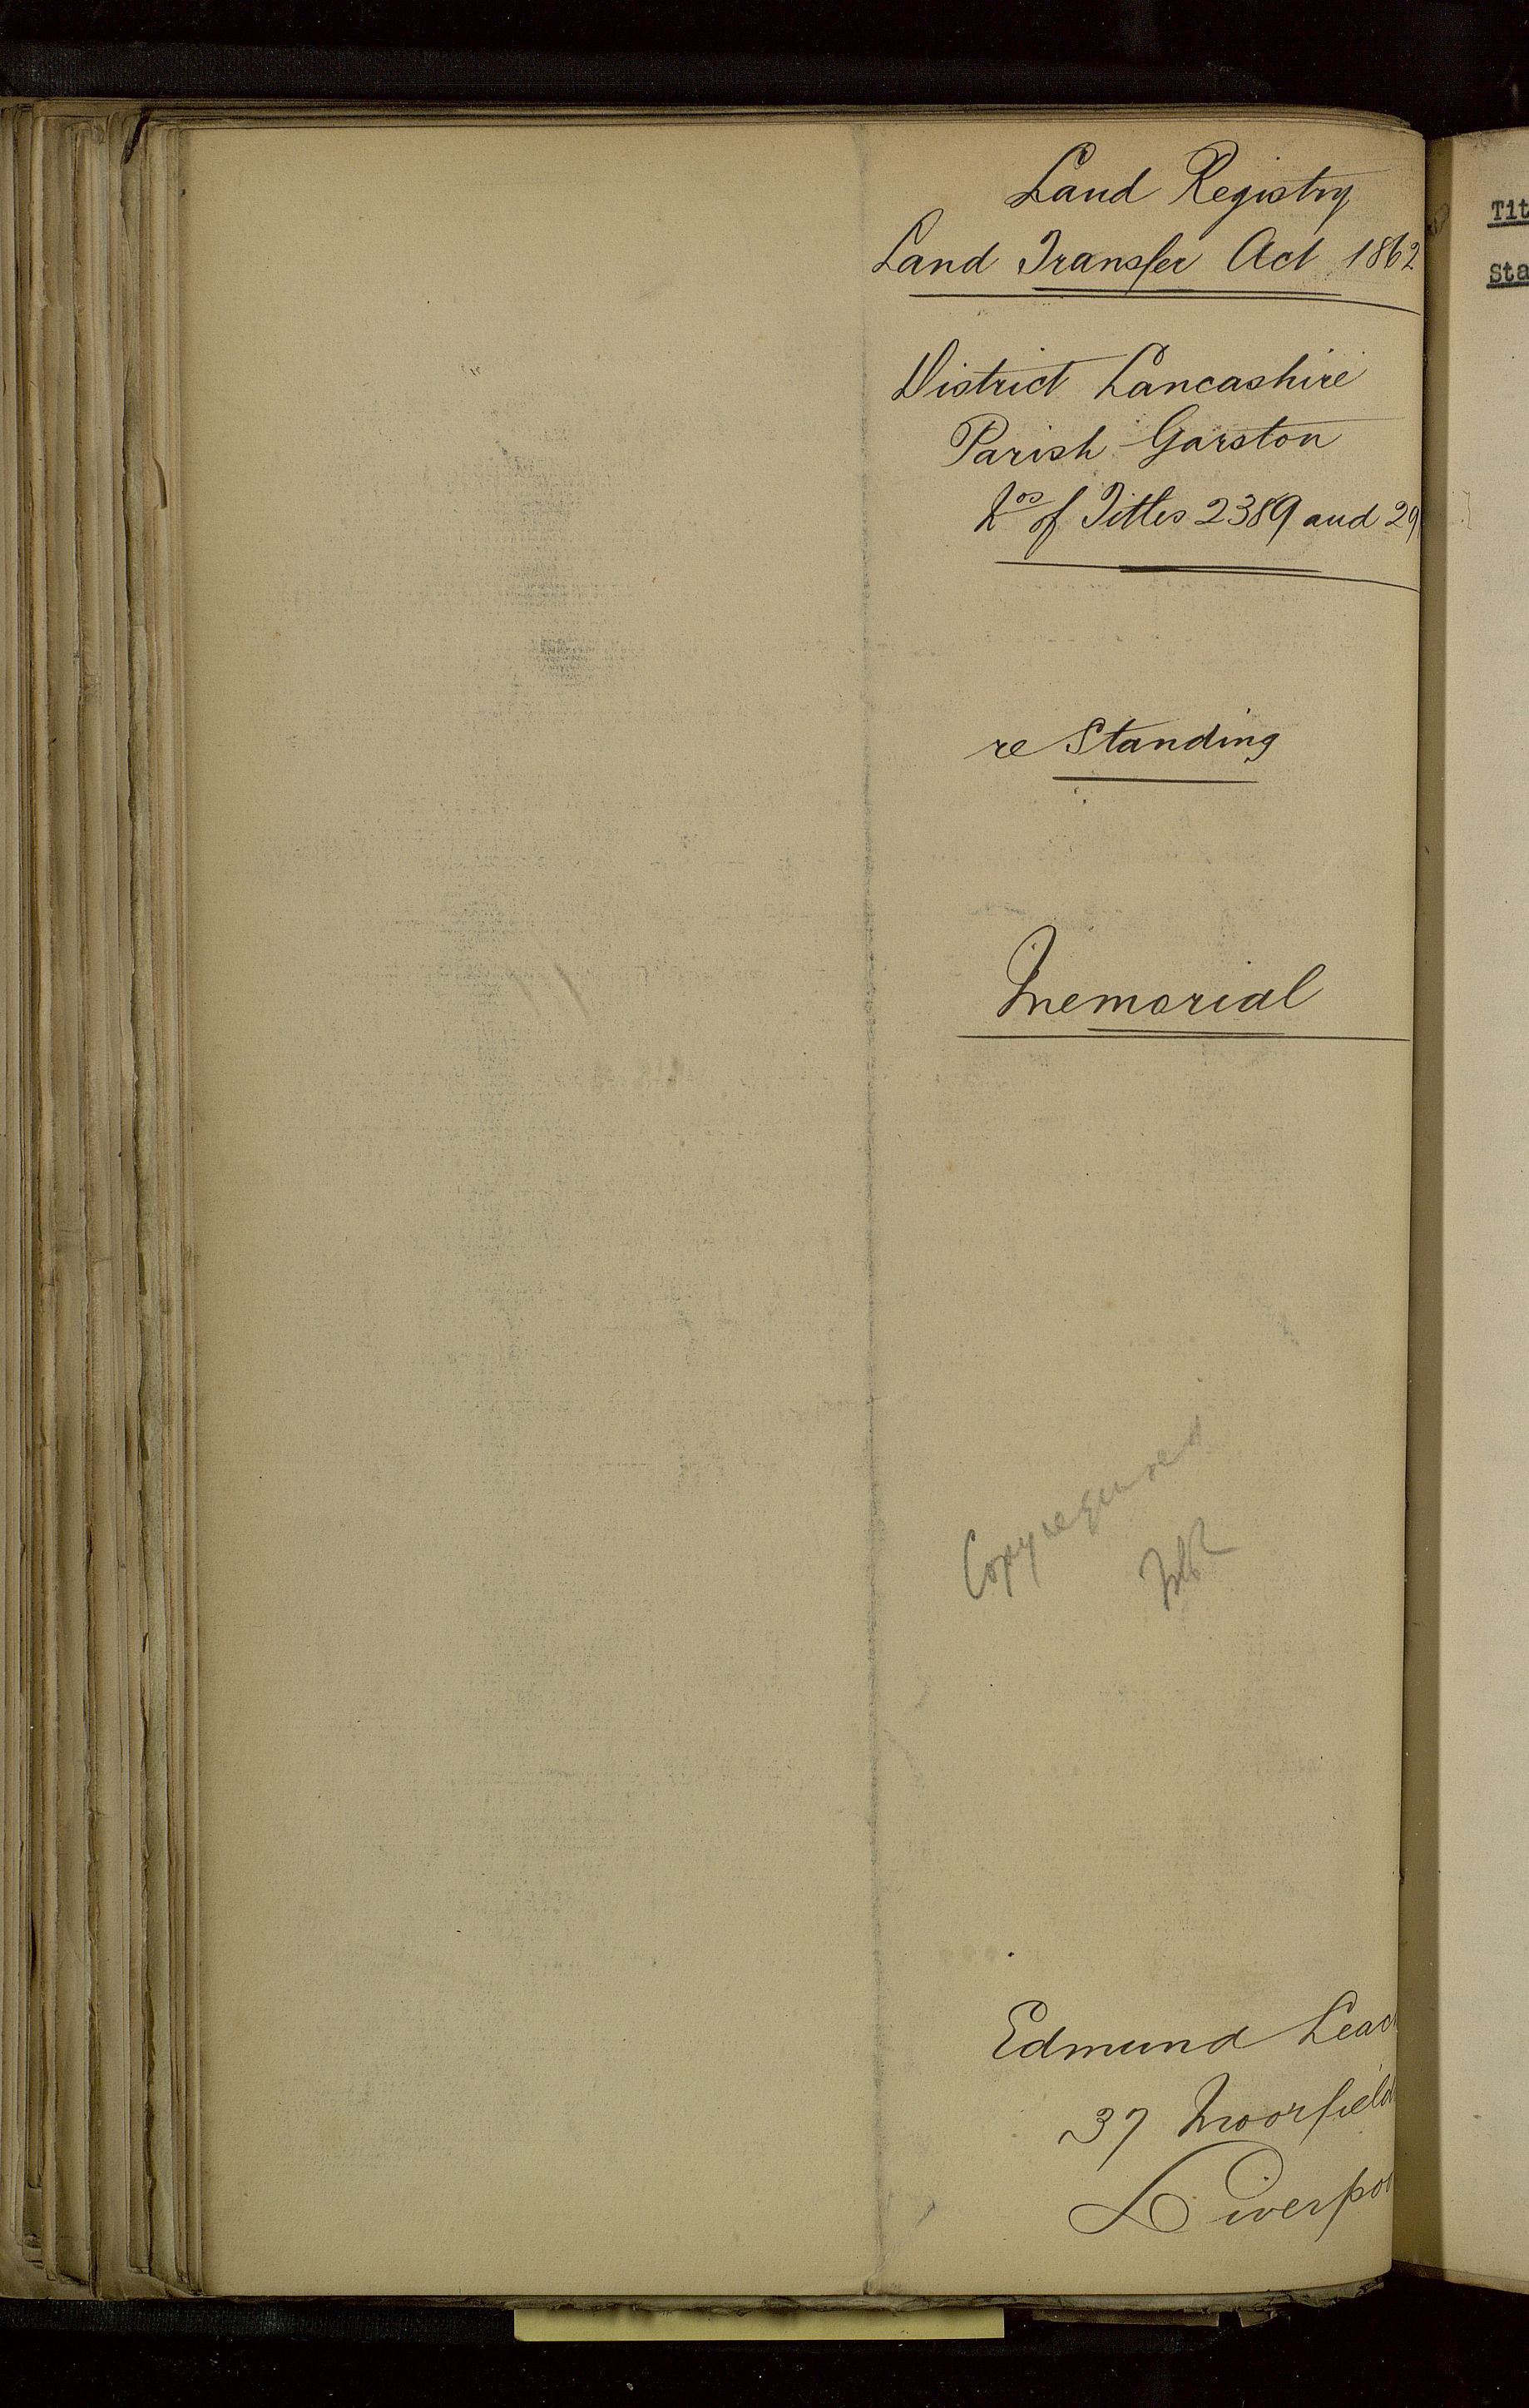 Land Registry
Land Transfer Act 1862
District Lancashire
Parish Garston
Nos of Titles 2389 and 29
re Standing
Memorial
Copy required
Edmund Leac
37 Moorfield
Liverpoo
Tit
Sta